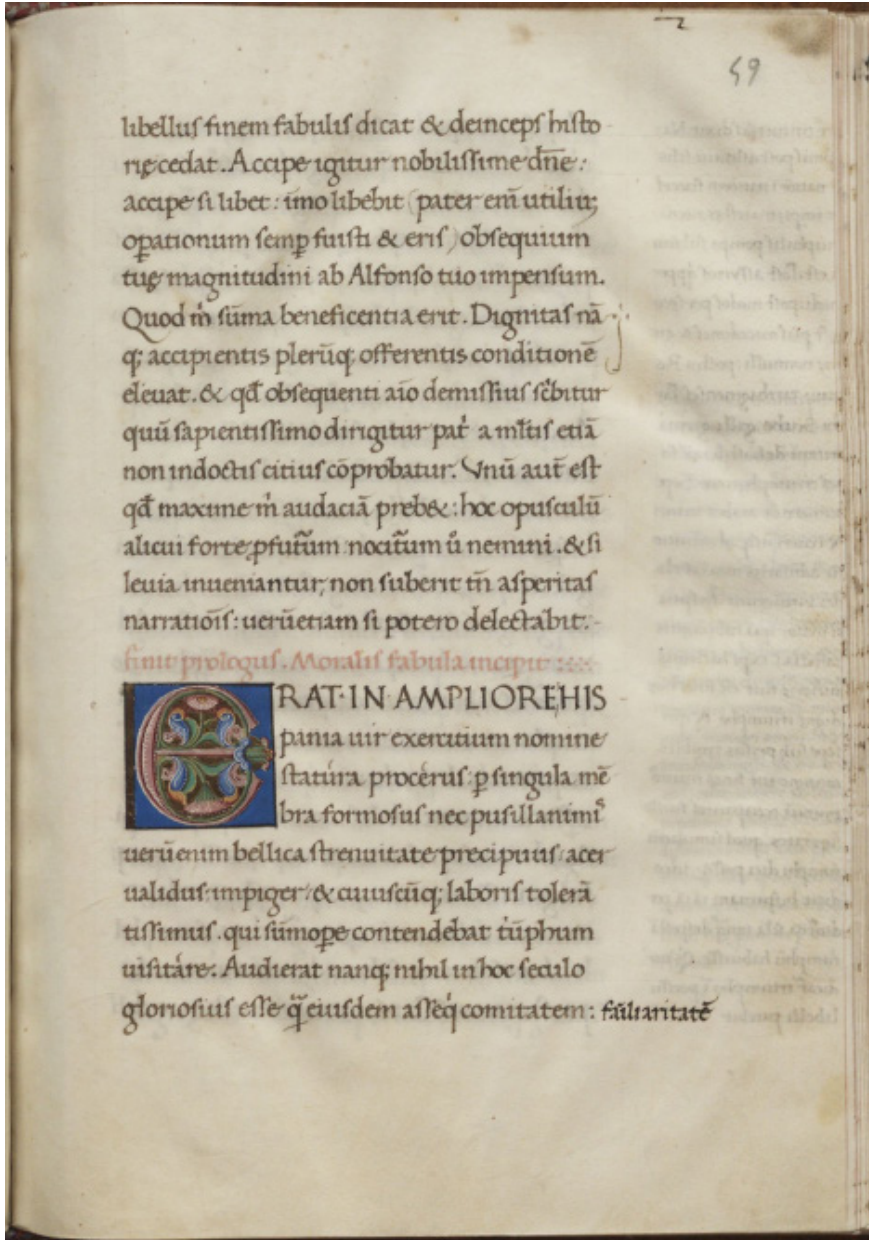 59
libellus finem fabulis dicat & deinceps histo
rię cedat. Accipe igitur nobilissime dn̄e:
accipe si libet: īmo libebit (pater em̄ utiliuꝫ
oꝑationum semꝑ fuisti & eris) obsequium
tuę magnitudini ab Alfonso tuo impensum.
Quod m̍ sūma beneficentia erit. Dignitas nā
qꝫ accipientis plerūqꝫ offerentis conditionē
eleuat. & qđ obsequenti aīo demissius sc̍bitur
quū sapientissimo dirigitur pat̍ a ml̄tis etiā
non indoctis citius cōprobatur. Vnū aut̄ est
qđ maxime m̍ audaciā preb&: hoc opusculū
alicui forte ꝓfut̄um nocit̄um ū nemini. & si
leuia inueniantur, non suberit tn̄ asperitas
narratiōis: uerūetiam si potero delectabit.
finit prologus. Moralis fabula incipit:
ERAT·IN·AMPLIORE HIS
pania uir exercitium nomine
statura procerus: ꝑ singula mē
bra formosus nec pusillanimis
uerū enim bellica strenuitate precipuus: acer
ualidus: impiger: & cuiuscūqꝫ laboris tolerā
tissimus. qui sūmoꝑe contendebat t̍ūphum
uisitare. Audierat nanqꝫ nihil in hoc seculo
gloriosius esse q̄ eiusdem asseq̍ comitatem: fāiliaritatē